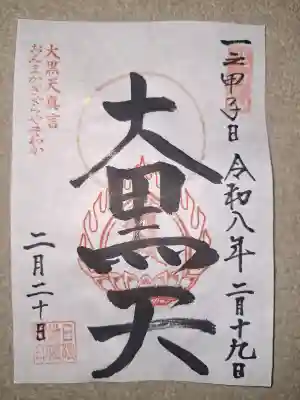 一之甲子日 令和八年 二月十九日
大黒天
大黒天真言
おんまかきゃらやそわか
二月二十日